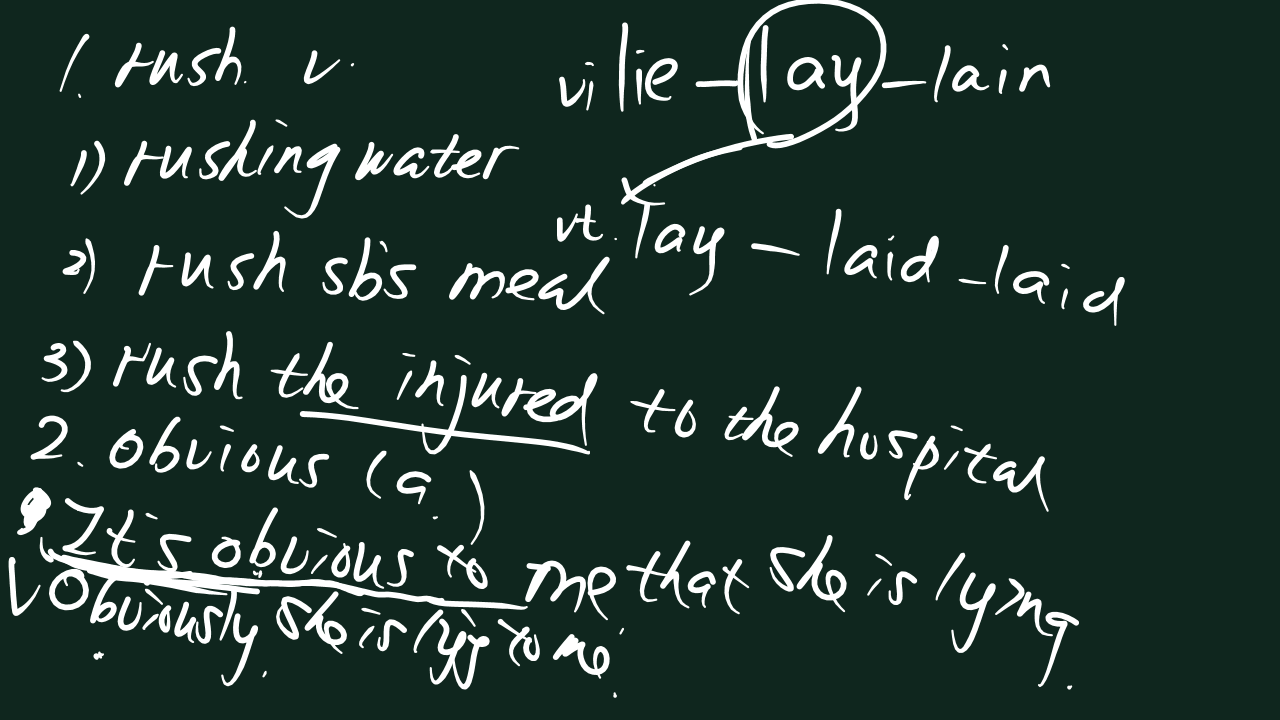 1. rush v.
1) rushing water
2) rush sb's meal
3) rush the injured to the hospital
2. obvious (a.)
It's obvious to me that she is lying.
Obviously she is lyg to me.
vi lie - lay - lain
vt. lay - laid - laid